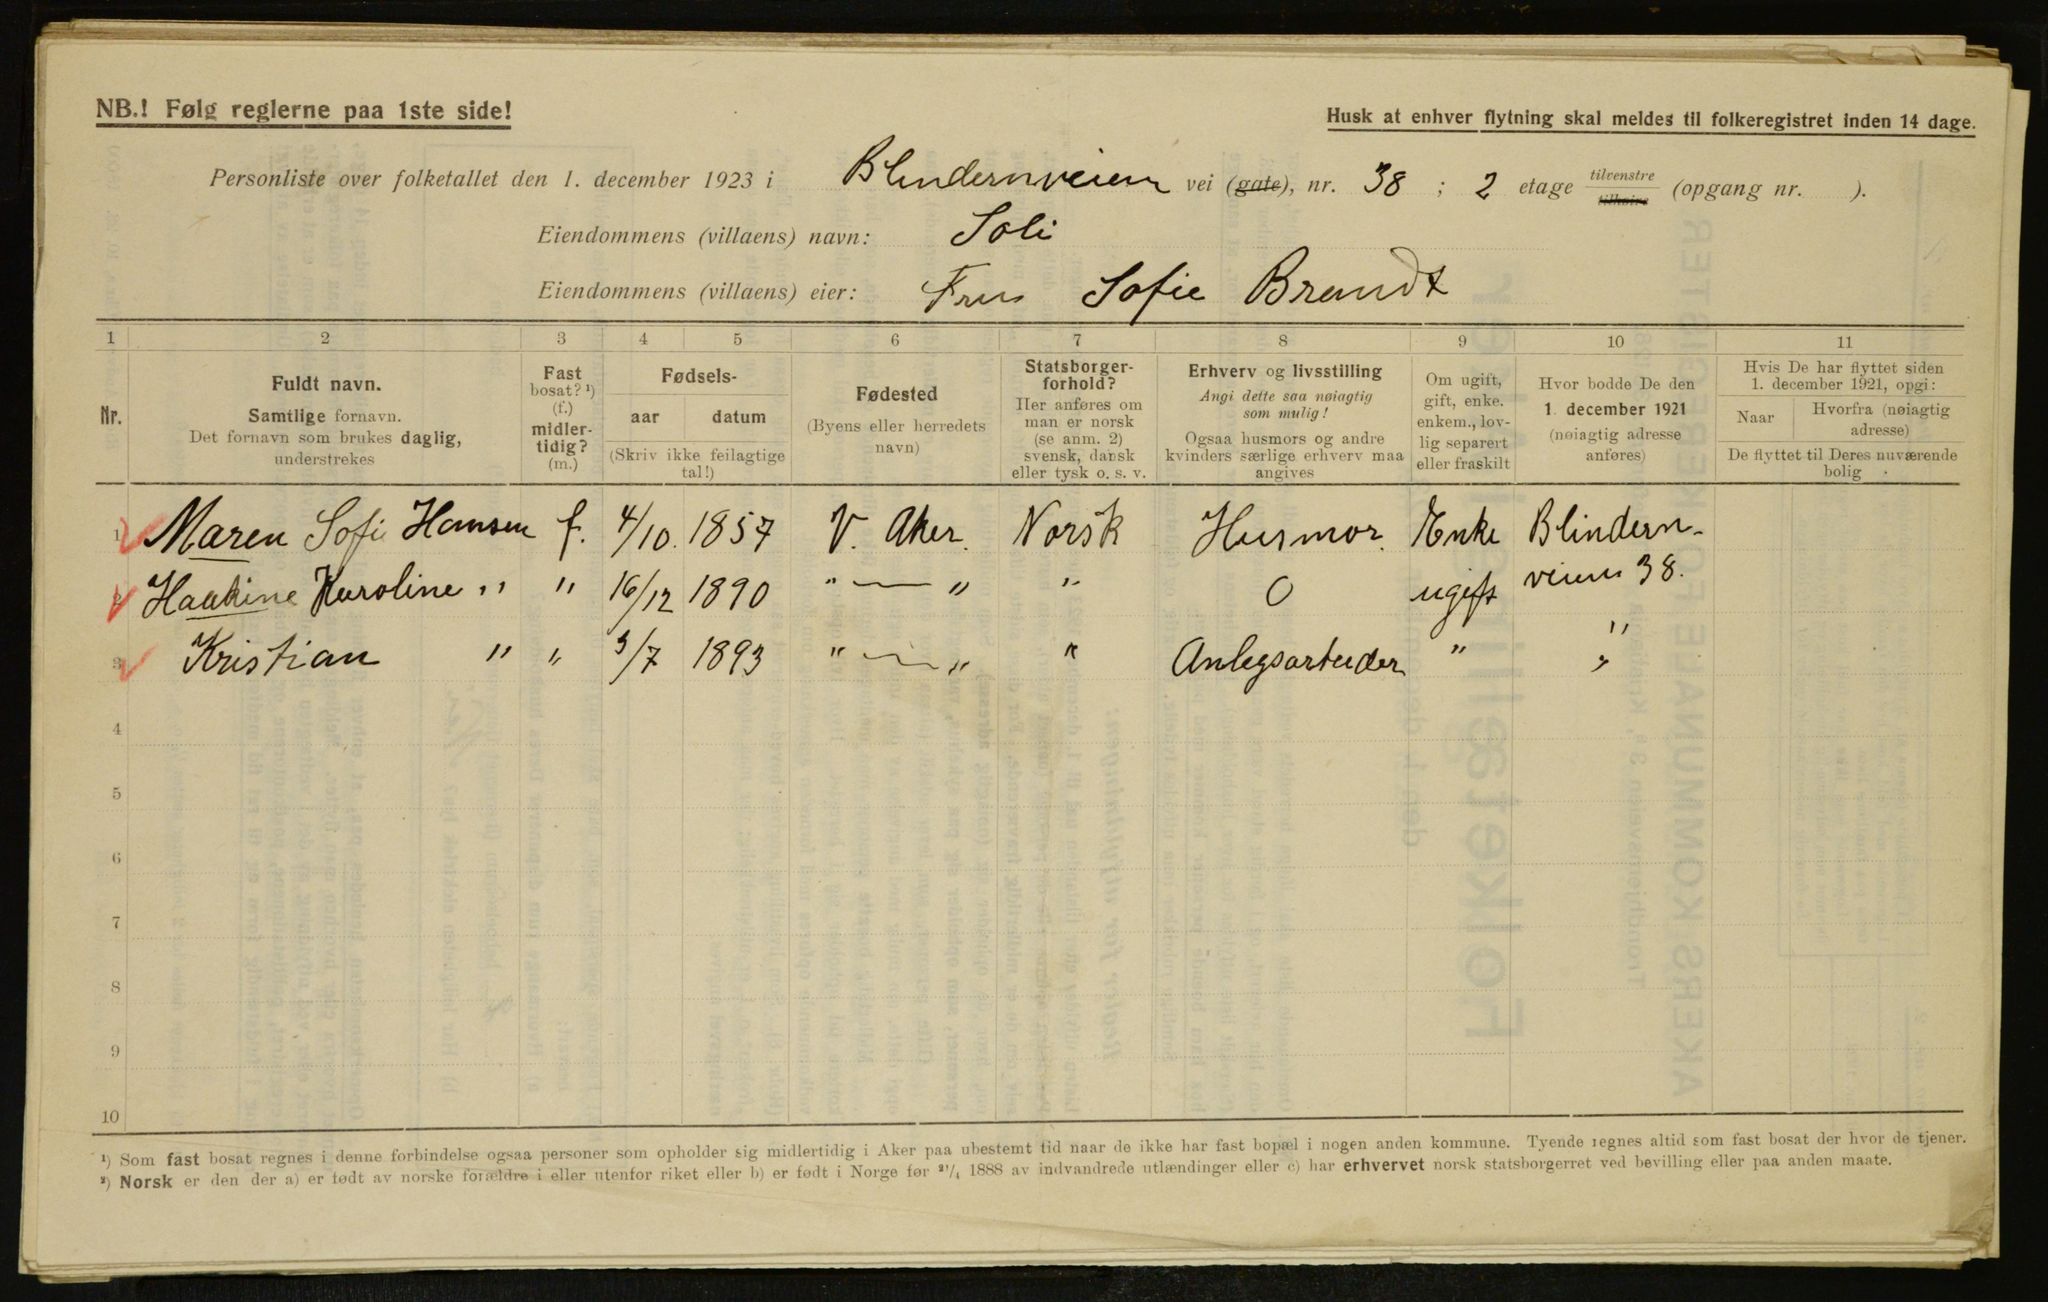 NB.! Følg reglerne paa 1ste side!
Husk at enhver flytning skal meldes til folkeregistret inden 14 dage.
Personliste over folketallet den 1. december 1923 i Blindernveien vei (gate), nr. 38 ; 2 etage tilvenstre tilhøire (opgang nr. ).
Eiendommens (villaens) navn: Soli
Eiendommens (villaens) eier: Fru Sofie Brandt
1 2 3 4 5 6 7 8 9 10 11
Nr.
Fuldt navn.
Samtlige fornavn.
Det fornavn som brukes daglig,
understrekes
Fast
bosat? ¹)
(f.)
midler-
tidig?
(m.)
Fødsels-
aar datum
(Skriv ikke feilagtige
tal!)
Fødested
(Byens eller herredets
navn)
Statsborger-
forhold?
Her anføres om
man er norsk
(se anm. 2)
svensk, dansk
eller tysk o. s. v.
Erhverv og livsstilling
Angi dette saa nøiagtig
som mulig!
Ogsaa husmors og andre
kvinders særlige erhverv maa
angives
Om ugift,
gift, enke.
enkem., lov-
lig separert
eller fraskilt
Hvor bodde De den
1. december 1921
(nøiagtig adresse
anføres)
Hvis De har flyttet siden
1. december 1921, opgi:
Naar Hvorfra (nøiagtig
adresse)
De flyttet til Deres nuværende
bolig
1 Maren Sofie Hansen f. 4/10. 1857 V. Aker. Norsk Husmor. Enke Blindern-
2 Haakine Karoline " " 16/12 1890 " — " " O ugift veien 38.
3 Kristian " " 3/7 1893 " — " " Anlegsarbeider " "
4
5
6
7
8
9
10
¹) Som fast bosat regnes i denne forbindelse ogsaa personer som opholder sig midlertidig i Aker paa ubestemt tid naar de ikke har fast bopæl i nogen anden kommune. Tyende regnes altid som fast bosat der hvor de tjener.
²) Norsk er den der a) er født av norske forældre i eller utenfor riket eller b) er født i Norge før ²¹/₄ 1888 av indvandrede utlændinger eller c) har erhvervet norsk statsborgerret ved bevilling eller paa anden maate.